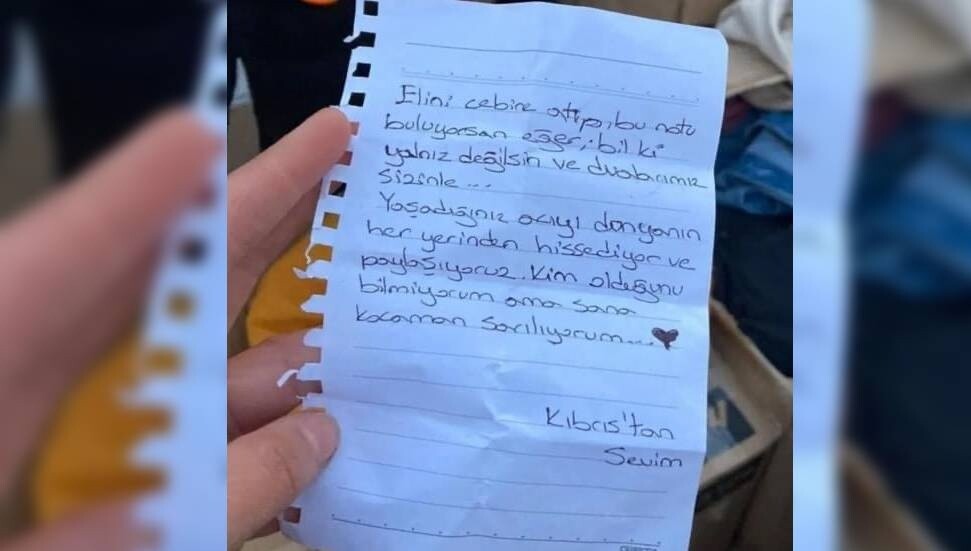 Elini cebine attıp, bu notu
buluyorsan eğer, bil ki
yalnız değilsin ve dualarımız
sizinle...
Yaşadığınız acıyı dünyanın
her yerinden hissediyor ve
paylaşıyoruz. Kim olduğunu
bilmiyorum ama sana
kocaman sarılıyorum....
Kıbrıs'tan
Sevim